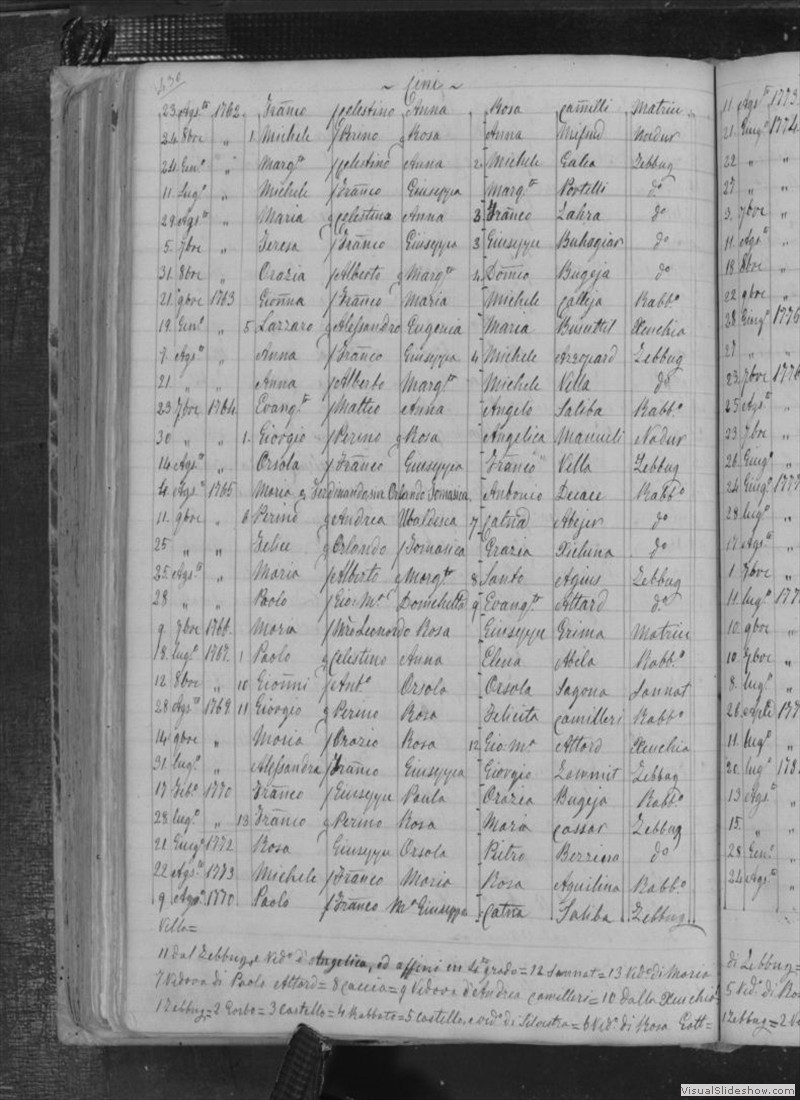 430
~ Cini ~
23 Agsto 1762 Franco f Celestino Anna Rosa Camilli Matrice
24 8bre „ 1 Michele f Perino g Rosa Anna Mifsud Nadur
24 Geno „ Margta f Celestino Anna 2 Michele Galea Zebbug
11 Lugo „ Michele f Franco Giuseppa Margta Portelli do
29 Agsto „ Maria g Celestina Anna 3 Franco Zahra do
5 7bre „ Teresa f Franco Giuseppa 3 Giuseppe Buhagiar do
31 8bre „ Orazia f Alberto g Margta 4 Domco Bugeja do
21 9bre 1763 Gionna f Franco Maria Michele Calleja Rabbo
19 Geno „ 5 Lazzaro g Alessandro Eugenia Maria Busuttil Xeuchia
7 Agsto „ Anna f Franco Giuseppa 4 Michele Azzopard Zebbug
21 „ „ Anna f Alberto Margta Michele Vella do
23 7bre 1764 Evangta f Matteo Anna Angelo Saliba Rabbo
30 „ „ 1 Giorgio f Perino g Rosa Angelica Manueli Nadur
14 Agsto „ Orsola f Franco Giuseppa Franco Vella Zebbug
4 Agsto 1765 Maria g Ferdinando sive Orlando Tomasica Antonio Decace Rabbo
11 9bre „ 6 Perino g Andrea Ubaldesca 7 Catna Abejer do
25 „ „ Felice g Orlando f Tomasica Grazia Xicluna do
25 Agsto „ Maria f Alberto g Margta 8 Santo Agius Zebbug
28 „ „ Paolo f Gio: Ma Domenichella 9 Evangta Attard do
9 7bre 1766 Maria f Mro Leonardo Rosa Giuseppe Grima Matrice
18 lugo 1767 1 Paolo g Celestino Anna Elena Abela Rabbo
12 8bre 10 Gionni f Anto Orsola Orsola Sagona Sannat
28 Agsto 1769 11 Giorgio g Perino Rosa Felicita Camilleri Rabbo
14 9bre „ Maria f Orazio Rosa 12 Gio: Ma Attard Xeuchia
31 lugo „ Alessandra f Franco Giuseppa Giorgio Zammit Zebbug
17 Febo 1770 Franco f Giuseppe Paula Orazia Bugeja Rabbo
28 lugo „ 13 Franco g Perino Rosa Maria Cassar Zebbug
21 Giugo 1772 Rosa Giuseppe Orsola Pietro Bezzina do
22 Agsto 1773 Michele f Franco Maria Rosa Aquilina Rabbo
9 Agsto 1770 Paolo f Franco Ma Giuseppa Catna Saliba Zebbug
Vella=
11 dal Zebbug, e Vedo d'Angelica, ed affini in 4to grado = 12 Sannat = 13 Vedo di Maria
7 Vedova di Paolo Attard = 8 Caccia = 9 Vedova d'Andrea Camilleri = 10 dalla Xeuchia
1 Zebbug = 2 Garbo = 3 Castello = 4 Rabbato = 5 Castello, e vedo di Silvestra = 6 Vedo di Rosa Gatt =
11 Agsto 1773
21 Giugo 1774
22 „ „
27 „ „
3 7bre „
11 Agsto „
18 8bre „
22 9bre „
28 Giugo 1776
27 „ „
23 7bre 1776
25 Agsto „
23 7bre „
26 Giugo „
24 Giugo 1777
28 lugo „
17 Agsto „
1 7bre „
11 lugo 177
10 9bre „
10 7bre „
8 lugo „
26 Aple 177
11 lugo „
20 lugo 178
13 Agsto „
15 „ „
28 Geno „
24 Agsto „
di Zebbug =
5 Vedo di Ros
1 Zebbug = 2 V
VisualSlideshow.com